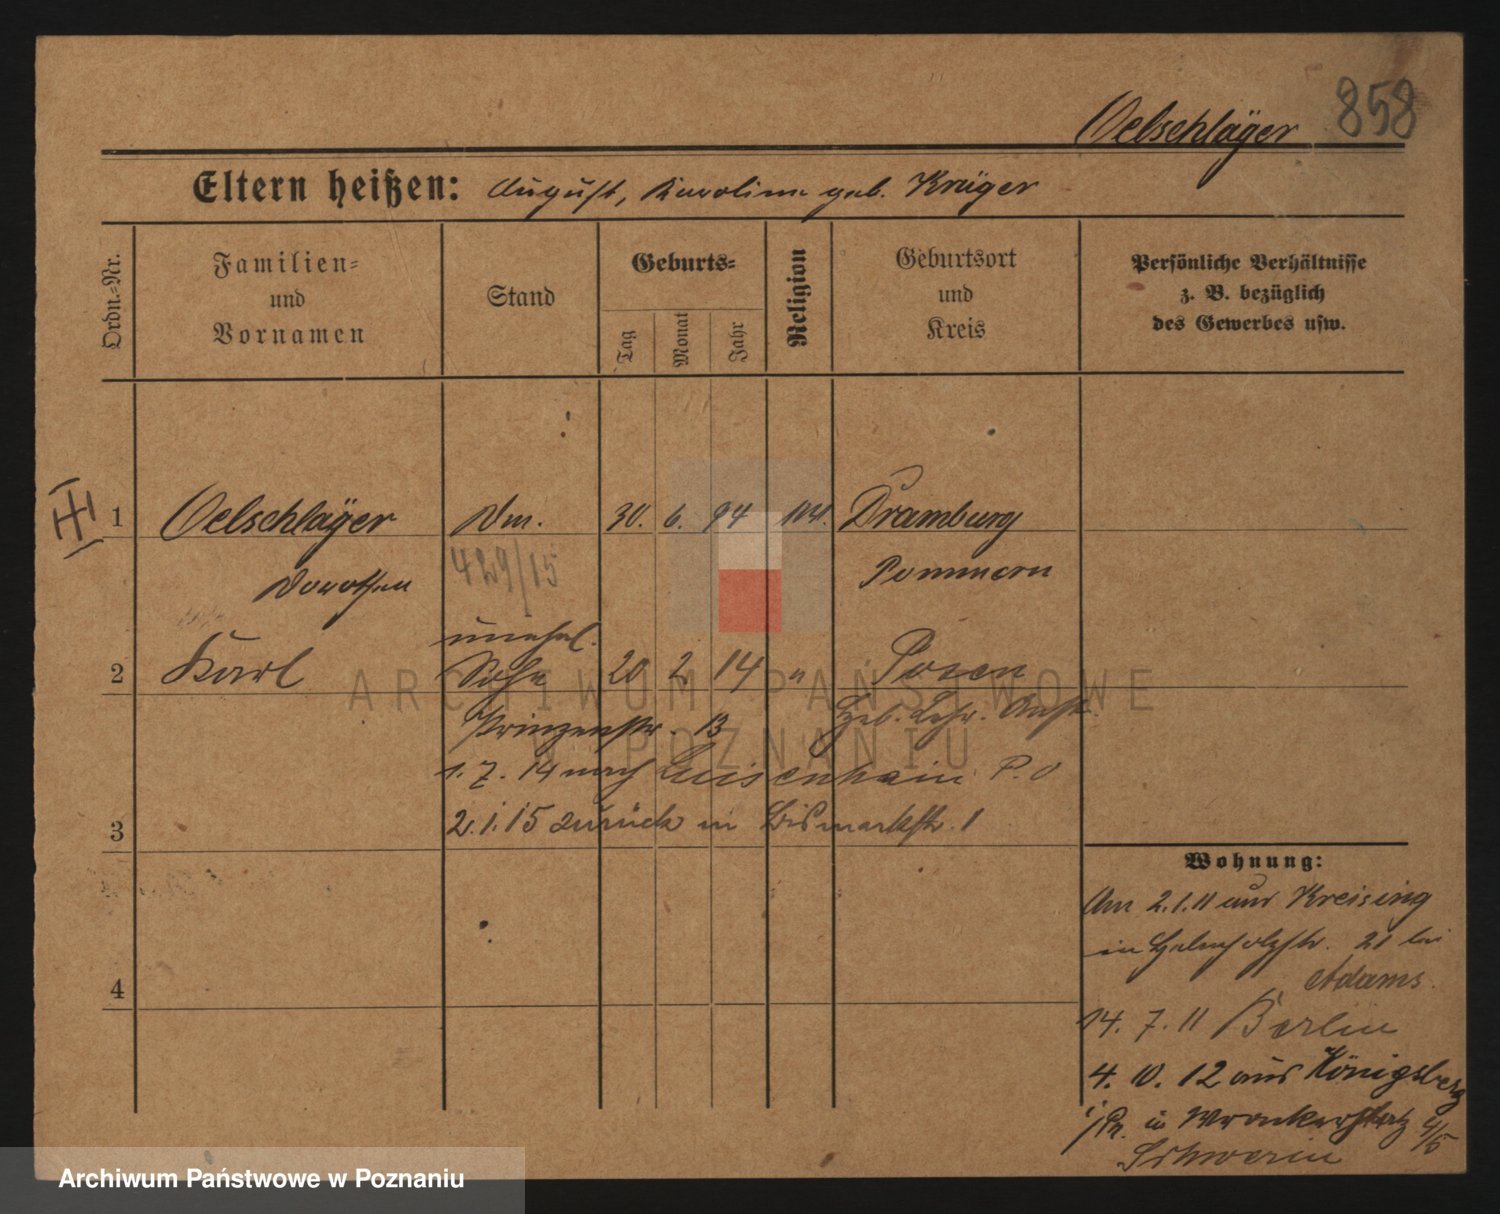 858
Oelschläger
Eltern heißen: August, Karoline geb. Krüger
Ordn.-Nr.
Familien-
und
Vornamen
Stand
Geburts-
Tag
Monat
Jahr
Religion
Geburtsort
und
Kreis
Persönliche Verhältnisse
z. B. bezüglich
des Gewerbes usw.
1 Oelschläger Dm. 30. 6. 94 Dramburg
Dorothea 429/15 Pommern
unehel.
2 Karl Sohn 20 2 14 " Posen
Prinzenstr. 13 Heb. Lehr. Anst.
1. 7. 14 nach Luisenhain P. O
3 2. 1. 15 zurück in Bismarckstr. 1
4
Wohnung:
Am 2. 1. 11 aus Kreising
in 21 bei
Adams.
14. 7. 11 Berlin
4. 10. 12 aus Königsberg
i/Pr. in Wronkerplatz 4/5
Schwerin
ARCHIWUM PAŃSTWOWE
W POZNANIU
Archiwum Państwowe w Poznaniu